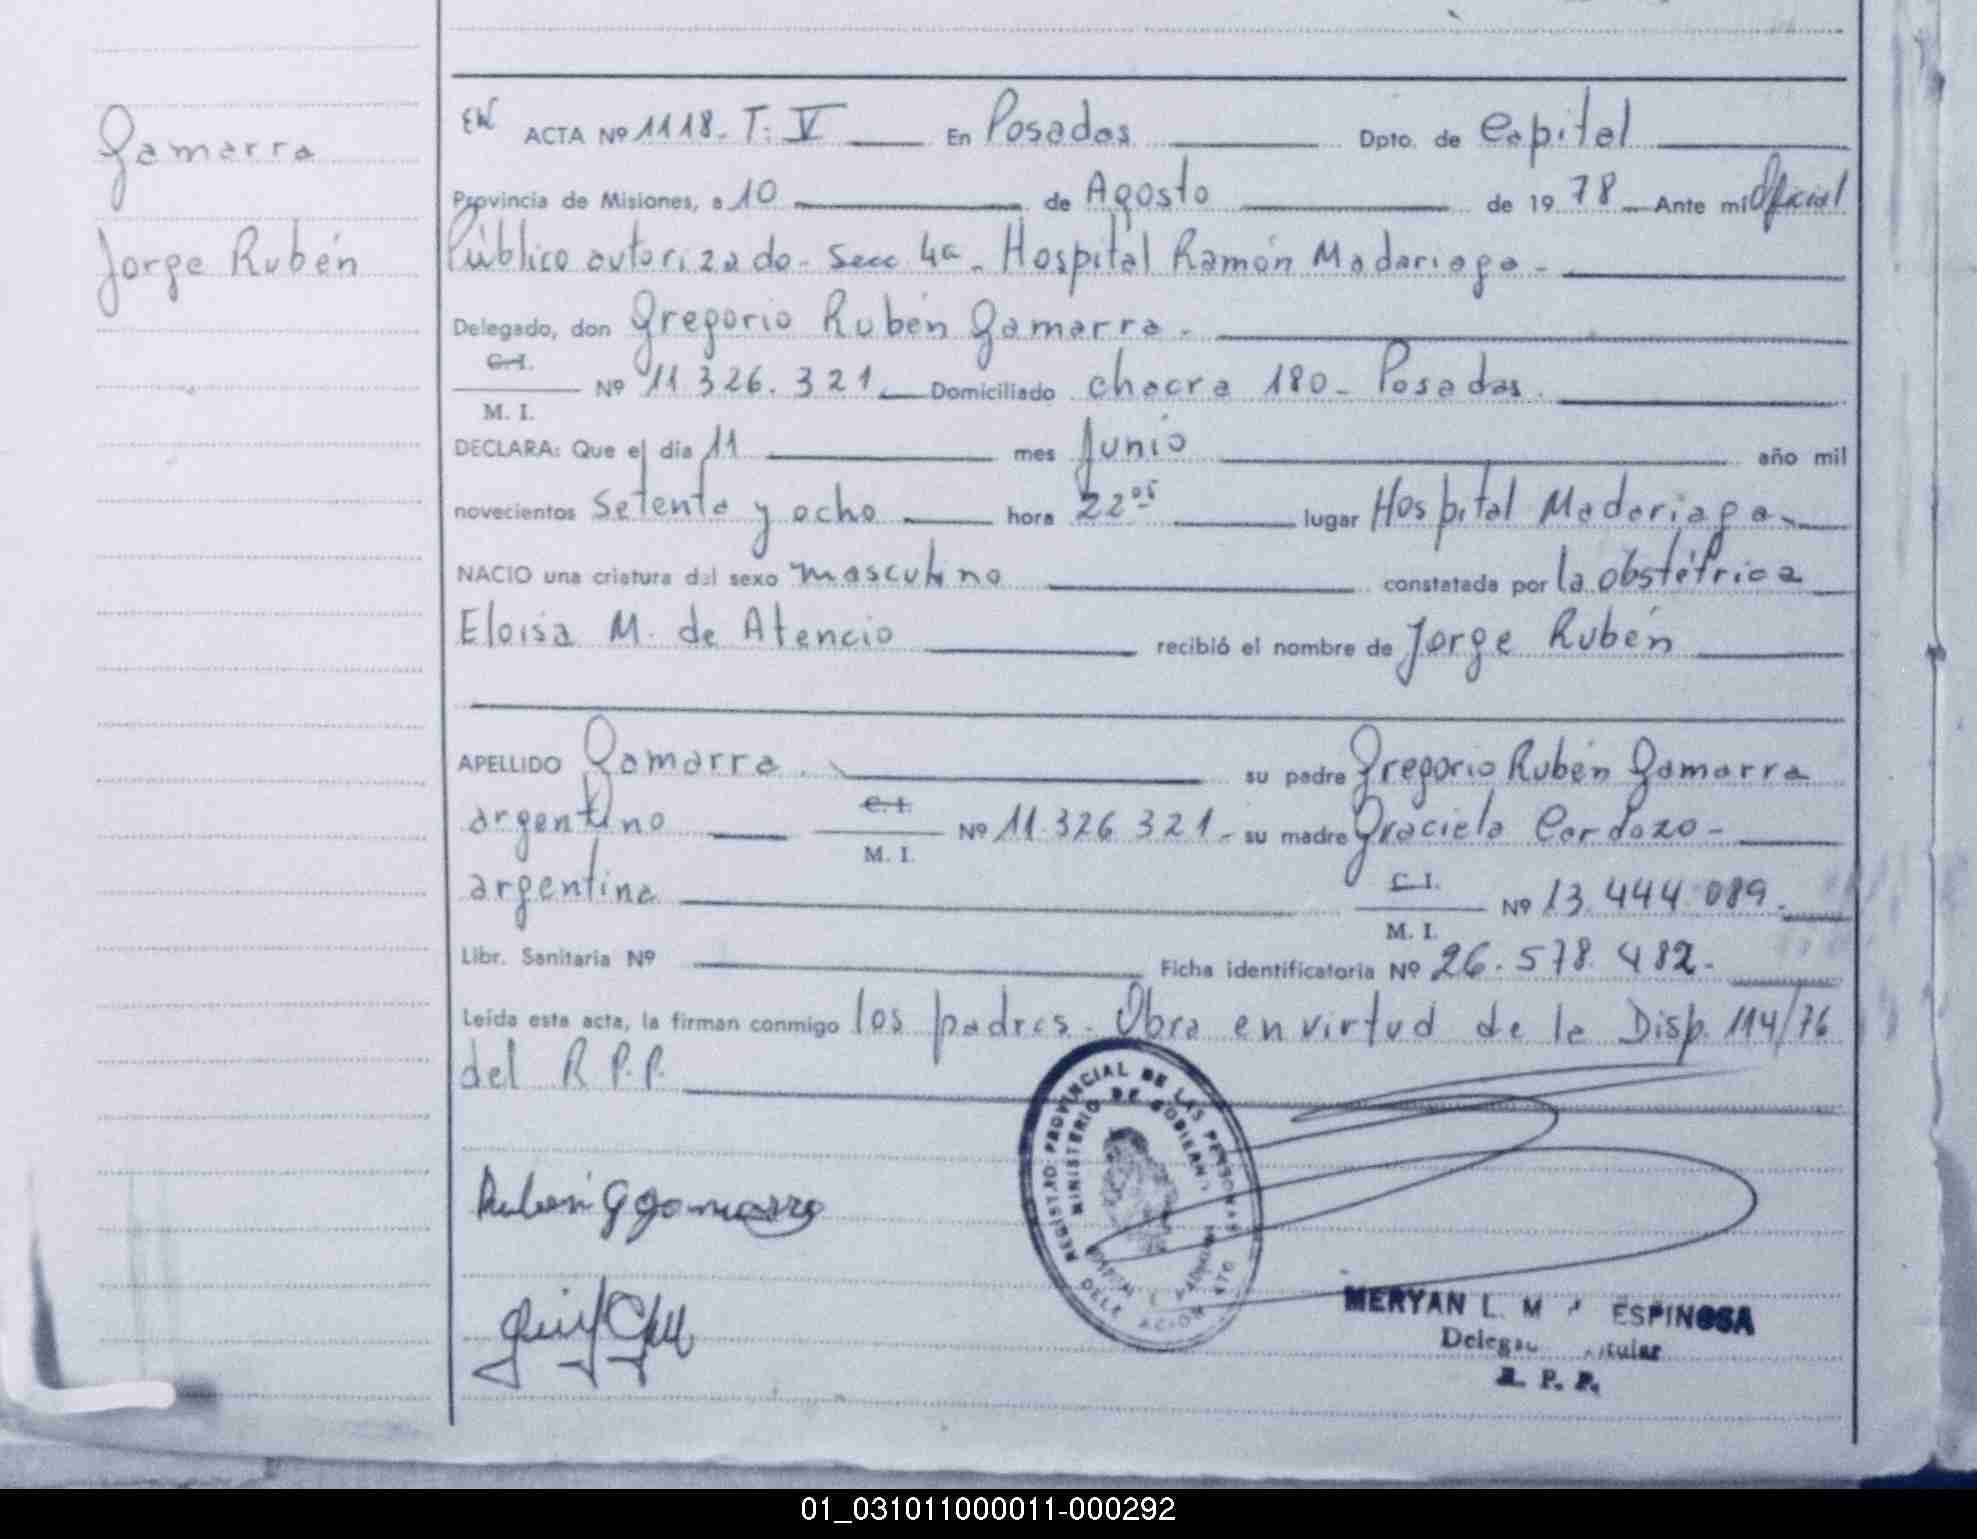 Gamarra
Jorge Rubén
EW ACTA Nº 1118. T: V En Posadas Dpto. de Capital
Provincia de Misiones, a 10 de Agosto de 1978 Ante mi Oficial
Público autorizado. Secc 4a. Hospital Ramón Madariaga -
Delegado, don Gregorio Rubén Gamarra.
C.I.
Nº 11.326.321. Domiciliado chacra 180 - Posadas.
M. I.
DECLARA: Que el día 11 mes Junio año mil
novecientos setenta y ocho hora 22 05 lugar Hospital Madariaga.
NACIO una criatura del sexo masculino constatada por la obstétrica
Eloisa M. de Atencio recibió el nombre de Jorge Rubén
APELLIDO Gamarra. su padre Gregorio Rubén Gamarra
argentino C.I. Nº 11.326.321. su madre Graciela Cardozo -
M. I.
argentina C.I. Nº 13.444.089.
M. I.
Libr. Sanitaria Nº Ficha identificatoria Nº 26.578.482.
Leída esta acta, la firman conmigo los padres. Obra en virtud de la Disp. 114/76
del R.P.P.
Ruben G Gamarra
REGISTRO PROVINCIAL DE LAS PERSONAS
MINISTERIO DE GOBIERNO
MERYAN L. M ESPINOSA
R. P. P.
01_031011000011-000292